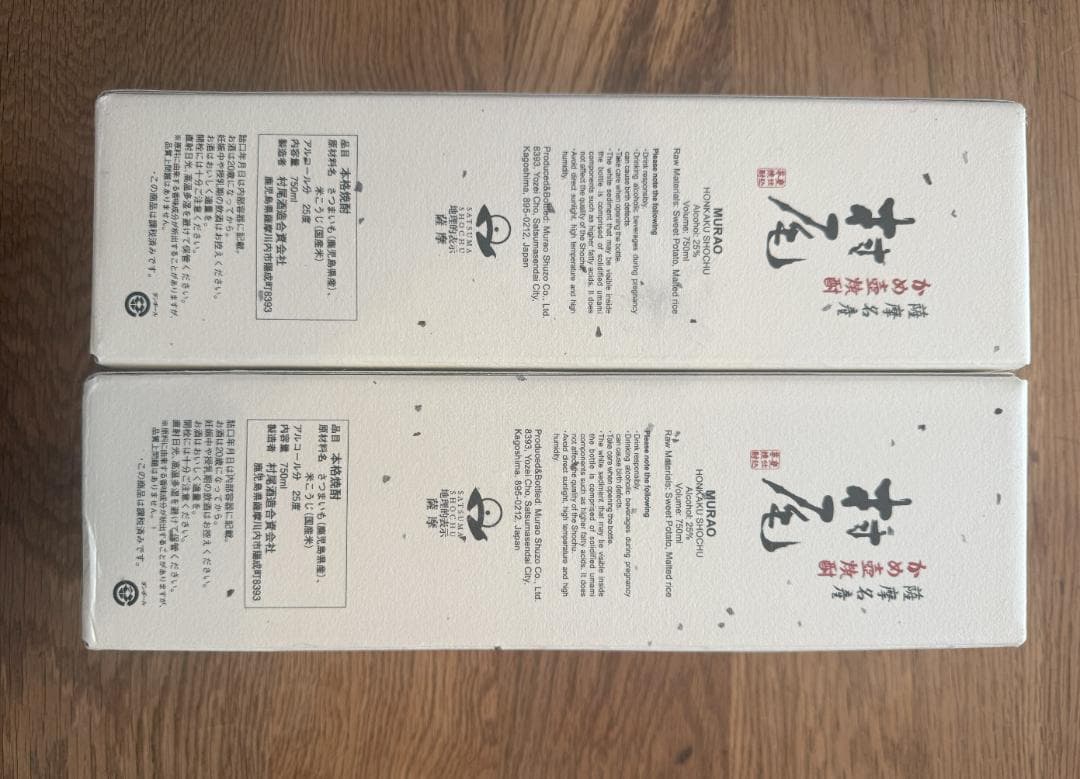 薩摩名産
かめ壺焼酎
村尾
MURAO
HONKAKU SHOCHU
Alcohol: 25%
Volume: 750ml
Raw Materials: Sweet Potato, Malted rice
Please note the following
・Drink responsibly.
・Drinking alcoholic beverages during pregnancy
can cause birth defects.
・Take care when opening the bottle.
・The white sediment that may be visible inside
the bottle is comprised of solidified umami
components such as higher fatty acids. It does
not affect the quality of the Shochu.
・Avoid direct sunlight, high temperature and high
humidity.
Produced&Bottled: Murao Shuzo Co., Ltd.
8393, Yozei Cho, Satsumasendai City,
Kagoshima, 895-0212, Japan
SATSUMA
SHOCHU
地理的表示
薩摩
品目 本格焼酎
原材料名 さつまいも(鹿児島県産)、
米こうじ(国産米)
アルコール分 25度
内容量 750ml
製造者 村尾酒造合資会社
鹿児島県薩摩川内市陽成町8393
詰口年月日は内部容器に記載。
お酒は20歳になってから。
妊娠中や授乳期の飲酒はお控えください。
お酒はおいしく適量を。
開栓には十分ご注意ください。
直射日光、高温多湿を避けて保管ください。
※原料に由来する香味成分が析出することがありますが、
品質上問題はありません。
・この商品は課税済みです。
ダンボール
薩摩名産
かめ壺焼酎
村尾
MURAO
HONKAKU SHOCHU
Alcohol: 25%
Volume: 750ml
Raw Materials: Sweet Potato, Malted rice
Please note the following
・Drink responsibly.
・Drinking alcoholic beverages during pregnancy
can cause birth defects.
・Take care when opening the bottle.
・The white sediment that may be visible inside
the bottle is comprised of solidified umami
components such as higher fatty acids. It does
not affect the quality of the Shochu.
・Avoid direct sunlight, high temperature and high
humidity.
Produced&Bottled: Murao Shuzo Co., Ltd.
8393, Yozei Cho, Satsumasendai City,
Kagoshima, 895-0212, Japan
SATSUMA
SHOCHU
地理的表示
薩摩
品目 本格焼酎
原材料名 さつまいも(鹿児島県産)、
米こうじ(国産米)
アルコール分 25度
内容量 750ml
製造者 村尾酒造合資会社
鹿児島県薩摩川内市陽成町8393
詰口年月日は内部容器に記載。
お酒は20歳になってから。
妊娠中や授乳期の飲酒はお控えください。
お酒はおいしく適量を。
開栓には十分ご注意ください。
直射日光、高温多湿を避けて保管ください。
※原料に由来する香味成分が析出することがありますが、
品質上問題はありません。
・この商品は課税済みです。
ダンボール